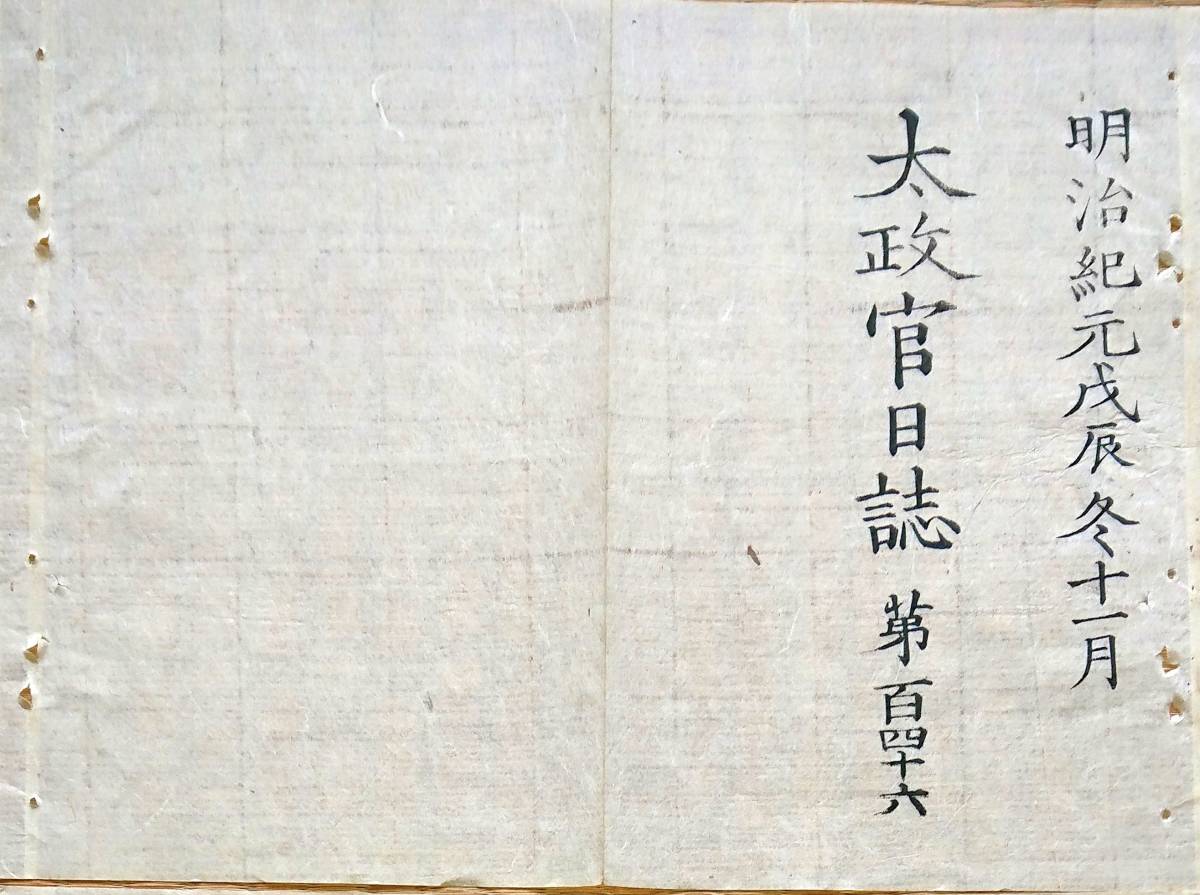 明治紀元戊辰冬十一月
太政官日誌 第百四十六